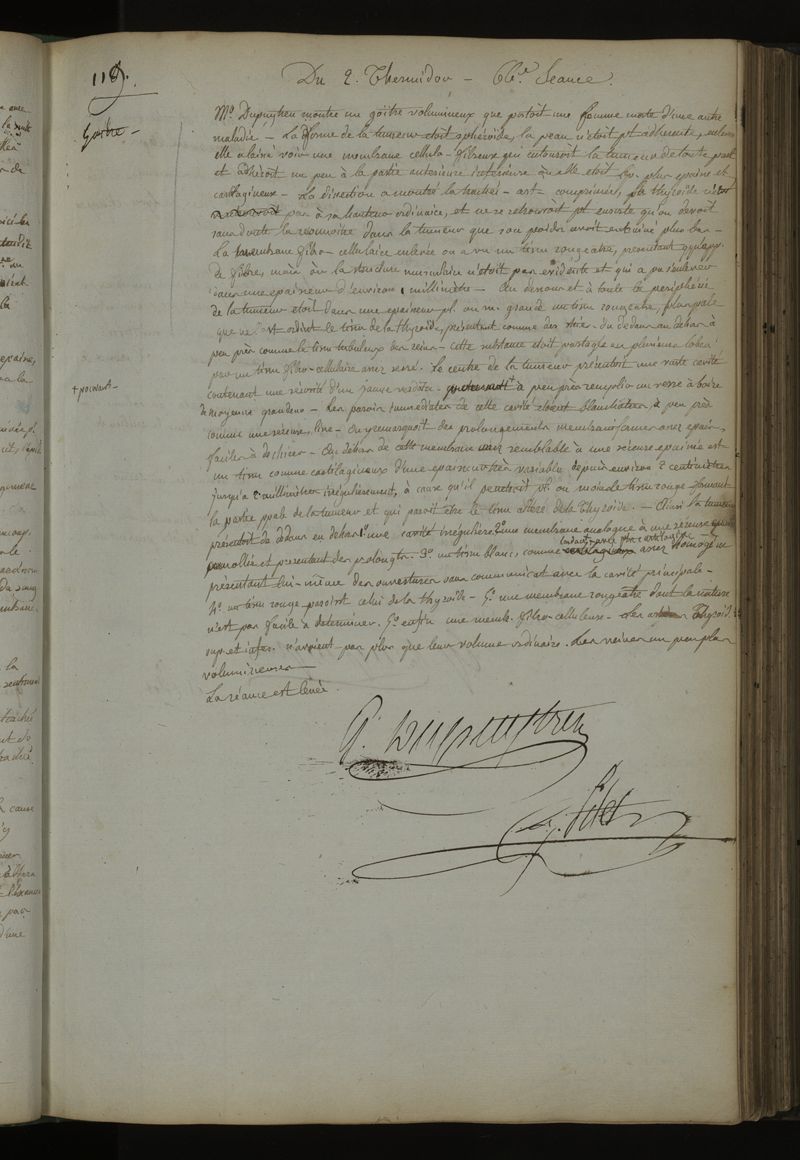 119.
Du 2. Thermidor – 66.e Seance.
Goître –
Mr. Dupuytren montre un goître volumineux que portoit une femme morte d'une autre
maladie – La forme de la tumeur étoit sphéroïde, la peau n'étoit pt adhérente, enlevée
elle a laissé voir une membrane cellulo-fibreuse qui entouroit la tumeur de toute part
et adhéroit un peu à la partie antérieure inférieure où elle étoit plus épaisse et
cartilagineuse – La dissection a montré la trachée-art. comprimée, la thyroïde n'étoit
pas à sa hauteur ordinaire, et ne se retrouvoit pt ensorte qu'on devoit
sans doute la reconnoitre dans la tumeur que son poids avoit entrainé plus bas –
La membrane fibro-cellulaire enlevée on a vu un tissu rougeatre, présentant qques app.
de fibres, mais où la structure musculaire n'étoit pas évidente et qui a pu s'enlever
dans une épaisseur d'environ 1 millimètre – Au dessous et à toute la périphérie
de la tumeur étoit dans une épaisseur pl. ou m. grande un tissu rougeatre, plus pale
que ne l'est ordint le tissu de la thyroïde, présentant comme des stries du dedans au dehors à
peu près comme le tissu tubuleux des reins – cette substance étoit partagée en plusieurs lobes
par un tissu fibro-cellulaire assez serré. Le centre de la tumeur présentoit une vaste cavité
+ pouvant –
contenant une sérosité d'un jaune verdâtre – à peu près remplir un verre à boire
de moyenne grandeur – Les parois immédiates de cette cavité étoient blanchatres, à peu près
comme une séreuse, lisse – On y remarquoit des prolongements membraniformes assez épais,
faciles à déchirer – Au dehors de cette membrane assez semblable à une séreuse épaissie est
un tissu comme cartilagineux d'une épaisseur très variable depuis environ 2 centimètres
jusqu'à 2 millimètres irrégulièrement, à cause qu'il pénétroit pl. ou moins le tissu rouge formant
la partie ppale de la tumeur et qui paroit être le tissu altéré de la thyroïde. – Ainsi la tumeur
présentoit de dedans en dehors 1.o une cavité irrégulière. 2.o une membrane analogue à une séreuse
ramollie et présentant des prolongts. 3.o un tissu blanc, comme assez homogène
présentant lui-même des ouvertures sans communicat. avec la cavité principale –
4.o un tissu rouge paroist celui de la thyroïde – 5.o une membrane rougeatre dont la nature
n'est pas facile à déterminer. 6.o enfin une memb. fibro-celluleuse – Les artères Thyroïd.
sup. et infer. n'avoient pas plus que leur volume ordinaire. Les veines un peu plus
volumineuses –
La séance est levée.
G. Dupuytren